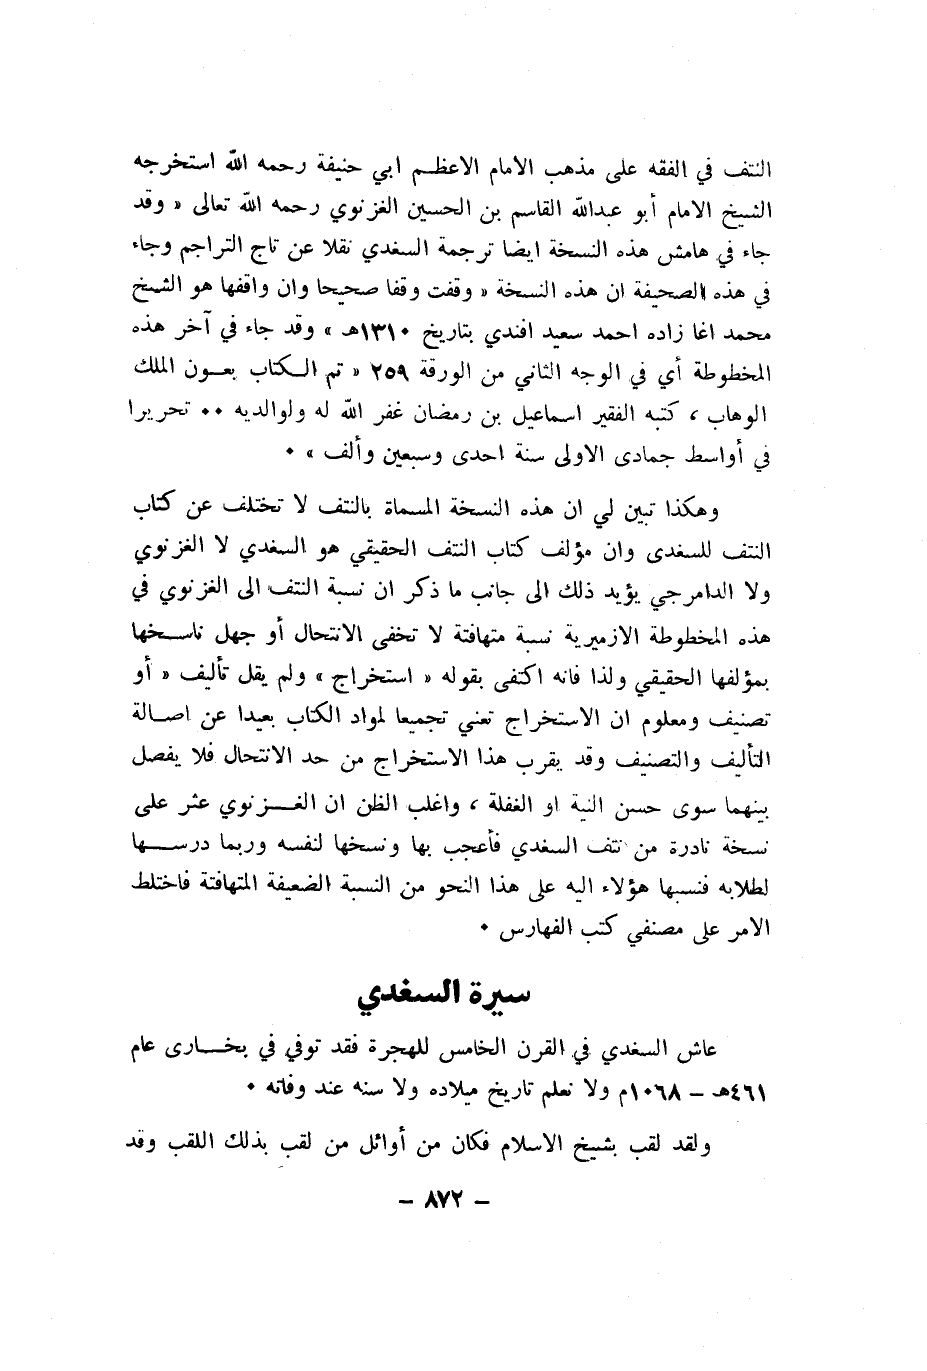 النتف في الفقه على مذهب الامام الاعظم ابي حنيفة رحمه الله استخرجه
الشيخ الامام أبو عبدالله القاسم بن الحسين الغزنوي رحمه الله تعالى « وقد
جاء في هامش هذه النسخة ايضا ترجمة السغدي نقلا عن تاج التراجم وجاء
في هذه الصحيفة ان هذه النسخة « وقفت وقفا صحيحا وان واقفها هو الشيخ
محمد اغا زاده احمد سعيد افندي بتاريخ ١٣١٠هـ » وقد جاء في آخر هذه
المخطوطة أي في الوجه الثاني من الورقة ٢٥٩ « تم الكتاب بعون الملك
الوهاب ، كتبه الفقير اسماعيل بن رمضان غفر الله له ولوالديه ٠٠ تحريرا
في أواسط جمادى الاولى سنة احدى وسبعين وألف » ٠
وهكذا تبين لي ان هذه النسخة المسماة بالنتف لا تختلف عن كتاب
النتف للسغدى وان مؤلف كتاب النتف الحقيقي هو السغدي لا الغزنوي
ولا الدامرجي يؤيد ذلك الى جانب ما ذكر ان نسبة النتف الى الغزنوي في
هذه المخطوطة الازميرية نسبة متهافتة لا تخفى الانتحال أو جهل ناسخها
بمؤلفها الحقيقي ولذا فانه اكتفى بقوله « استخراج » ولم يقل تأليف « أو
تصنيف ومعلوم ان الاستخراج تعني تجميعا لمواد الكتاب بعيدا عن اصالة
التأليف والتصنيف وقد يقرب هذا الاستخراج من حد الانتحال فلا يفصل
بينهما سوى حسن النية او الغفلة ، واغلب الظن ان الغزنوي عثر على
نسخة نادرة من نتف السغدي فأعجب بها ونسخها لنفسه وربما درسها
لطلابه فنسبها هؤلاء اليه على هذا النحو من النسبة الضعيفة المتهافتة فاختلط
الامر على مصنفي كتب الفهارس ٠
سيرة السغدي
عاش السغدي في القرن الخامس للهجرة فقد توفي في بخارى عام
٤٦١هـ – ١٠٦٨م ولا نعلم تاريخ ميلاده ولا سنه عند وفاته ٠
ولقد لقب بشيخ الاسلام فكان من أوائل من لقب بذلك اللقب وقد
– ٨٧٢ –